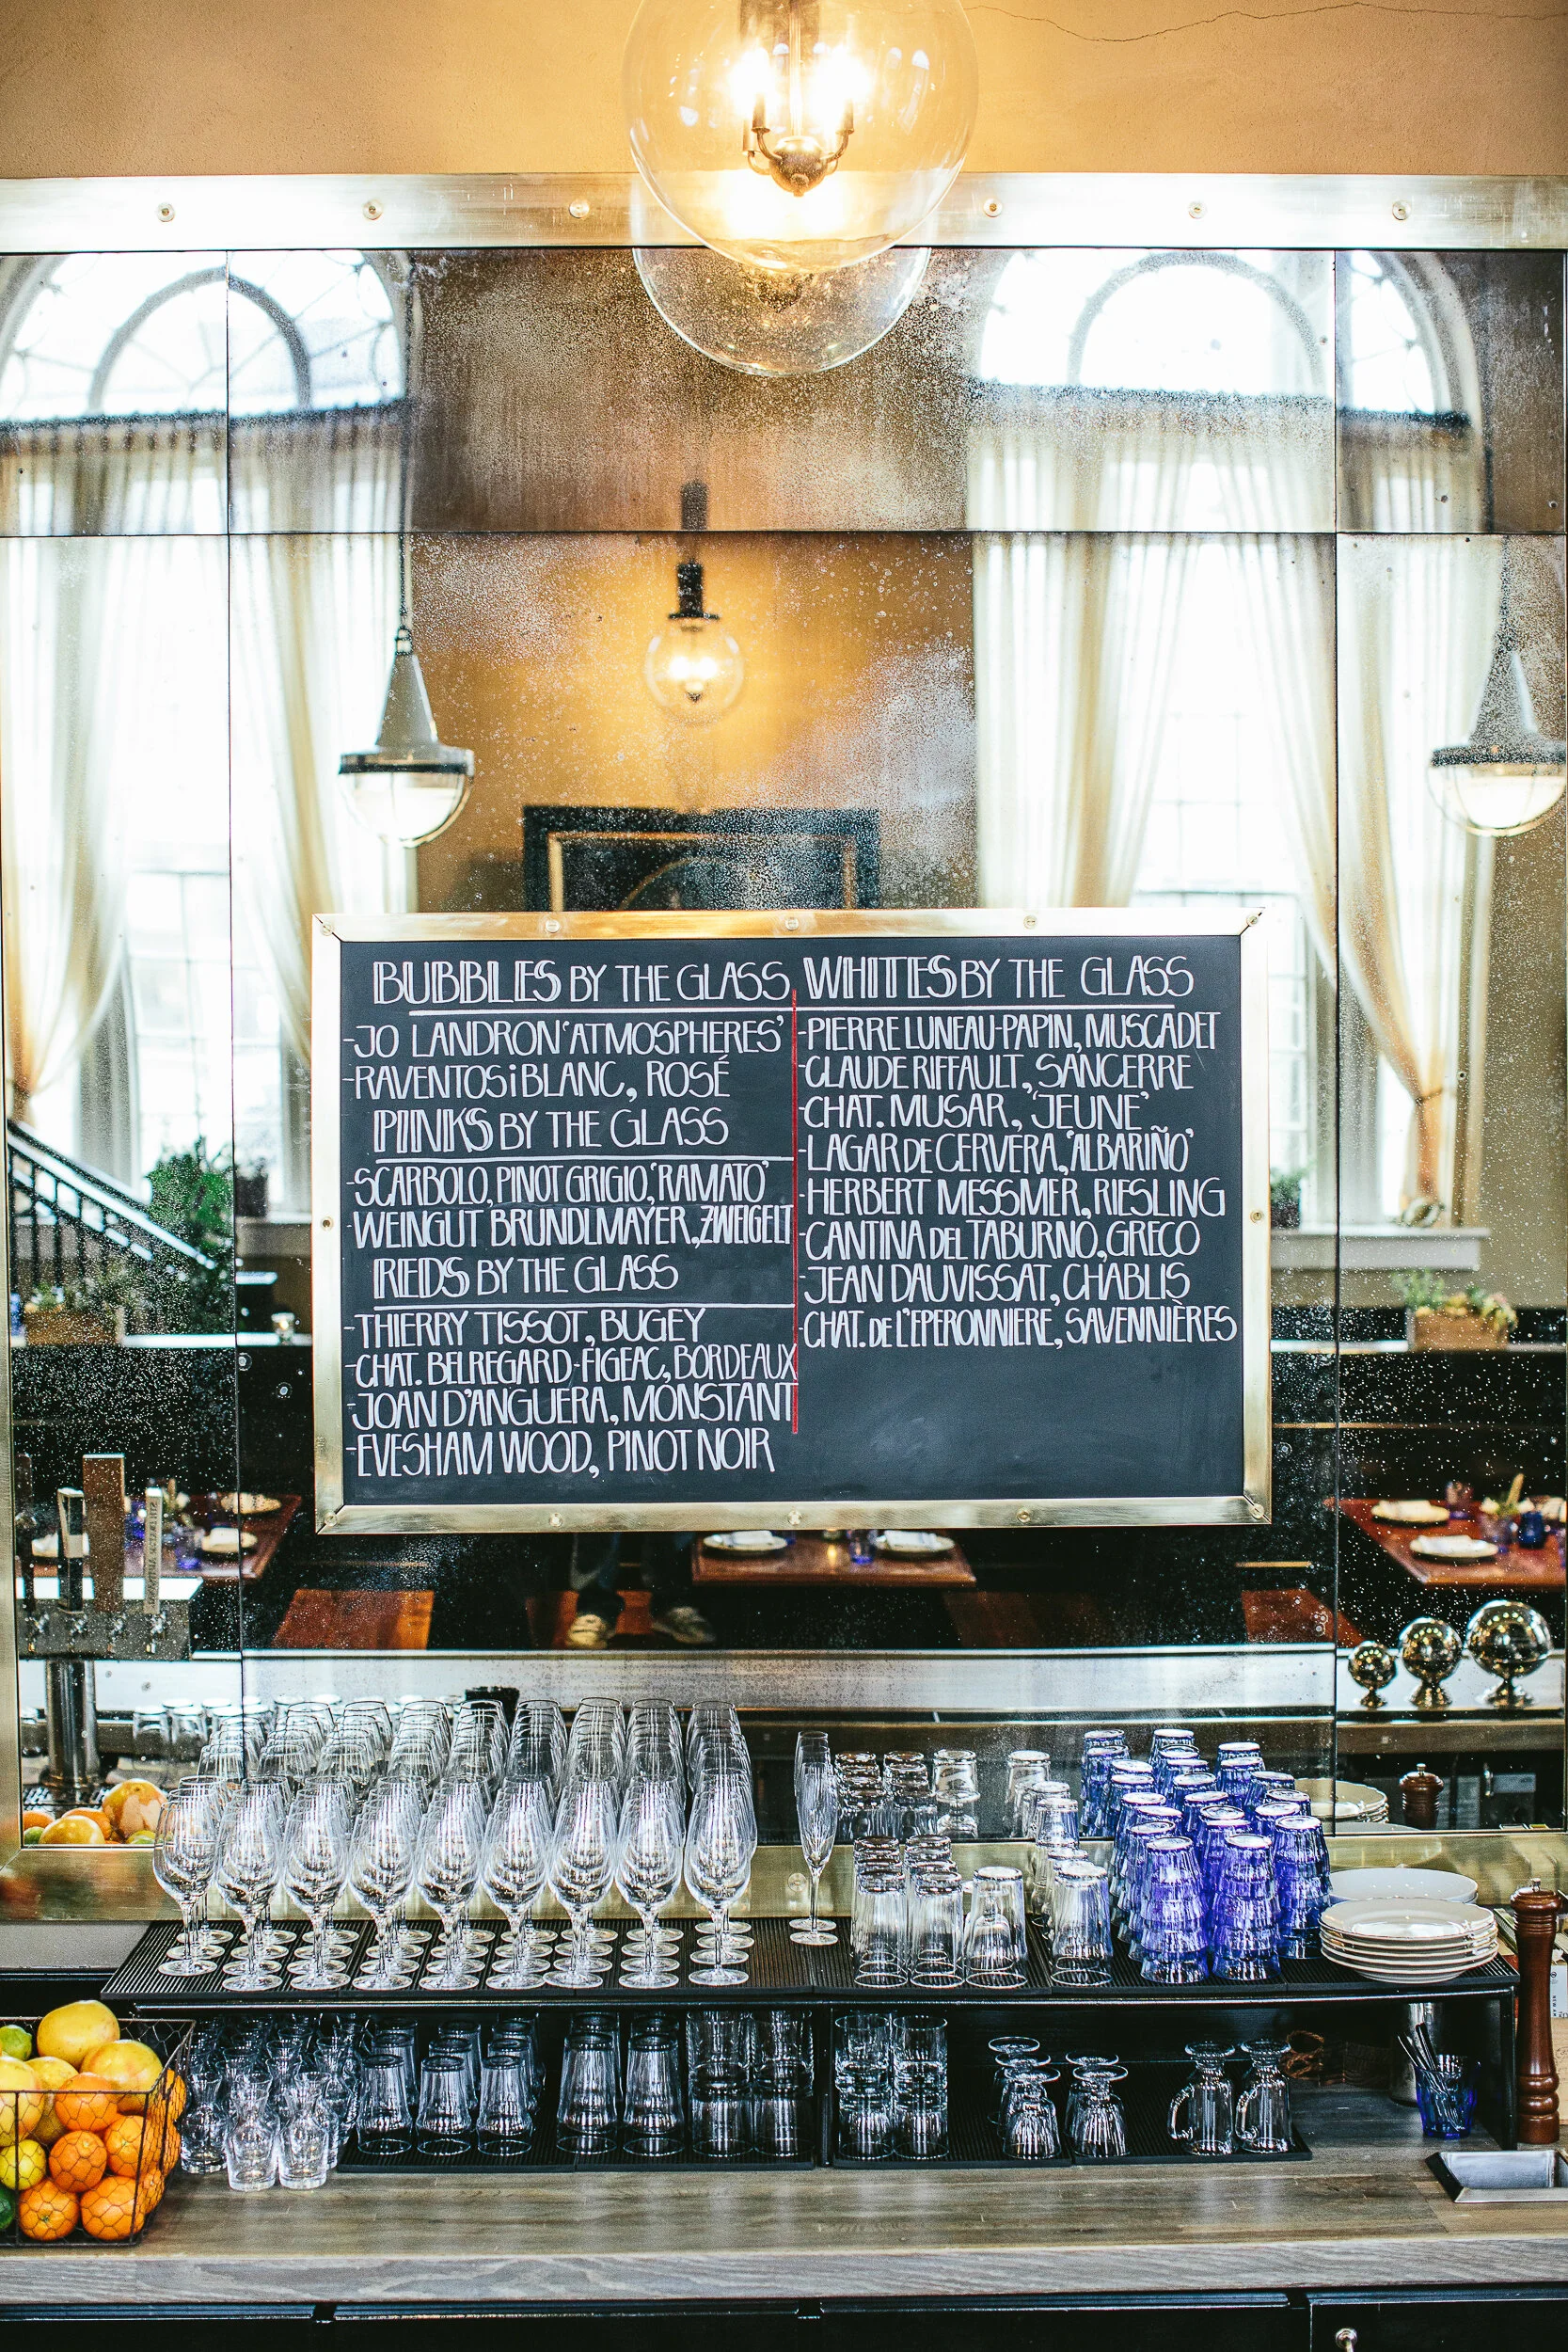 BUBBLES BY THE GLASS
-JO LANDRON 'ATMOSPHERES'
-RAVENTOS i BLANC, ROSÉ
PINKS BY THE GLASS
-SCARBOLO, PINOT GRIGIO, 'RAMATO'
-WEINGUT BRUNDLMAYER, ZWEIGELT
REDS BY THE GLASS
-THIERRY TISSOT, BUGEY
-CHAT. BELREGARD-FIGEAC, BORDEAUX
-JOAN D'ANGUERA, MONSTANT
-EVESHAM WOOD, PINOT NOIR
WHITES BY THE GLASS
-PIERRE LUNEAU-PAPIN, MUSCADET
-CLAUDE RIFFAULT, SANCERRE
-CHAT. MUSAR, 'JEUNE'
-LAGAR DE CERVERA, 'ALBARIÑO'
-HERBERT MESSMER, RIESLING
-CANTINA DEL TABURNO, GRECO
-JEAN DAUVISSAT, CHABLIS
-CHAT. DE L'EPERONNIERE, SAVENNIÈRES